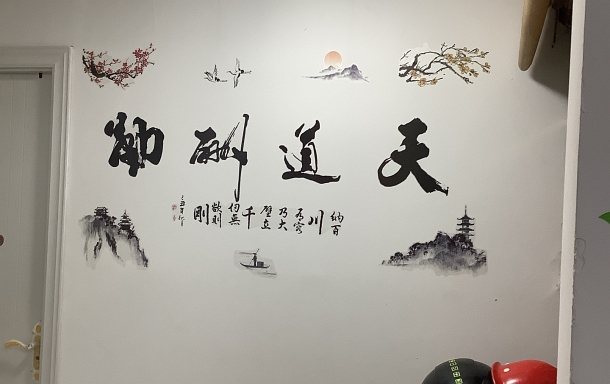 天道酬勤
纳百川有容乃大壁立千仞無欲则刚